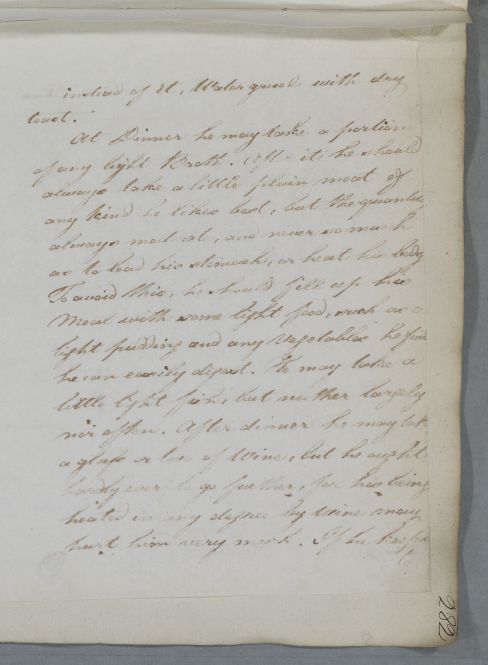 instead of it, Water gruel with dry
toast.
At Dinner he may take a portion
of any light Broth. After it he should
always take a little plain meat of
any kind he likes best, but the quantity
always moderate, and never so much
as to load his stomach, or heat his body
To avoid this, he should fill up his
Meal with some light food, such as a
light pudding and any Vegetables he finds
he can easily digest. He may take a
little light fish, but neither largely
nor often. After dinner he may take
a glass or two of Wine, but he ought
hardly ever to go further, for his being
heated in any degree by Wine may
hurt him very much. If he keeps
282